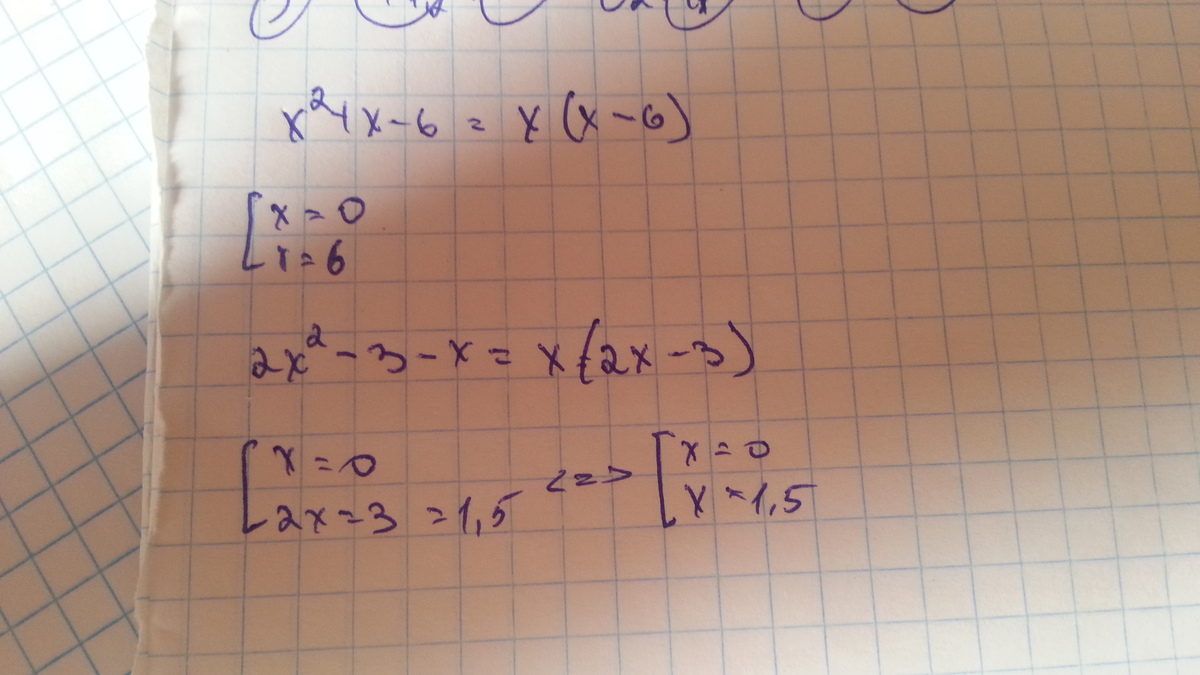 x²+x-6 = x(x-6)
[x=0
x=6
2x²-3-x = x(2x-3)
[x=0 <=> [x=0
2x=3 =1,5 x=1,5